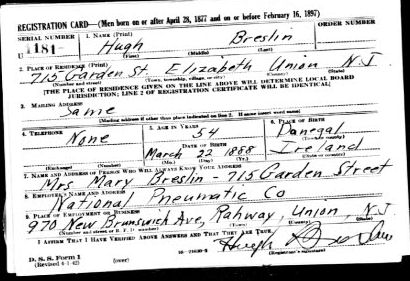 REGISTRATION CARD—(Men born on or after April 28, 1877 and on or before February 16, 1897)
SERIAL NUMBER 1. NAME (Print) ORDER NUMBER
U 181 Hugh Breslin
(First) (Middle) (Last)
2. PLACE OF RESIDENCE (Print)
715 Garden St Elizabeth Union N.J
(Number and street) (Town, township, village, or city) (County) (State)
[THE PLACE OF RESIDENCE GIVEN ON THE LINE ABOVE WILL DETERMINE LOCAL BOARD
JURISDICTION; LINE 2 OF REGISTRATION CERTIFICATE WILL BE IDENTICAL]
3. MAILING ADDRESS
Same
[Mailing address if other than place indicated on line 2. If same insert word same]
4. TELEPHONE 5. AGE IN YEARS 6. PLACE OF BIRTH
None 54 Danegal
DATE OF BIRTH (Town or county)
March 22 1888 Ireland
(Exchange) (Number) (Mo.) (Day) (Yr.) (State or country)
7. NAME AND ADDRESS OF PERSON WHO WILL ALWAYS KNOW YOUR ADDRESS
Mrs Mary Breslin - 715 Garden Street
8. EMPLOYER'S NAME AND ADDRESS
National Pneumatic Co
9. PLACE OF EMPLOYMENT OR BUSINESS
970 New Brunswick Ave, Rahway, Union, N.J
(Number and street or R. F. D. number) (Town) (County) (State)
I AFFIRM THAT I HAVE VERIFIED ABOVE ANSWERS AND THAT THEY ARE TRUE.
Hugh Breslin
D. S. S. Form 1
(Revised 4-1-42) (over) (Registrant's signature)